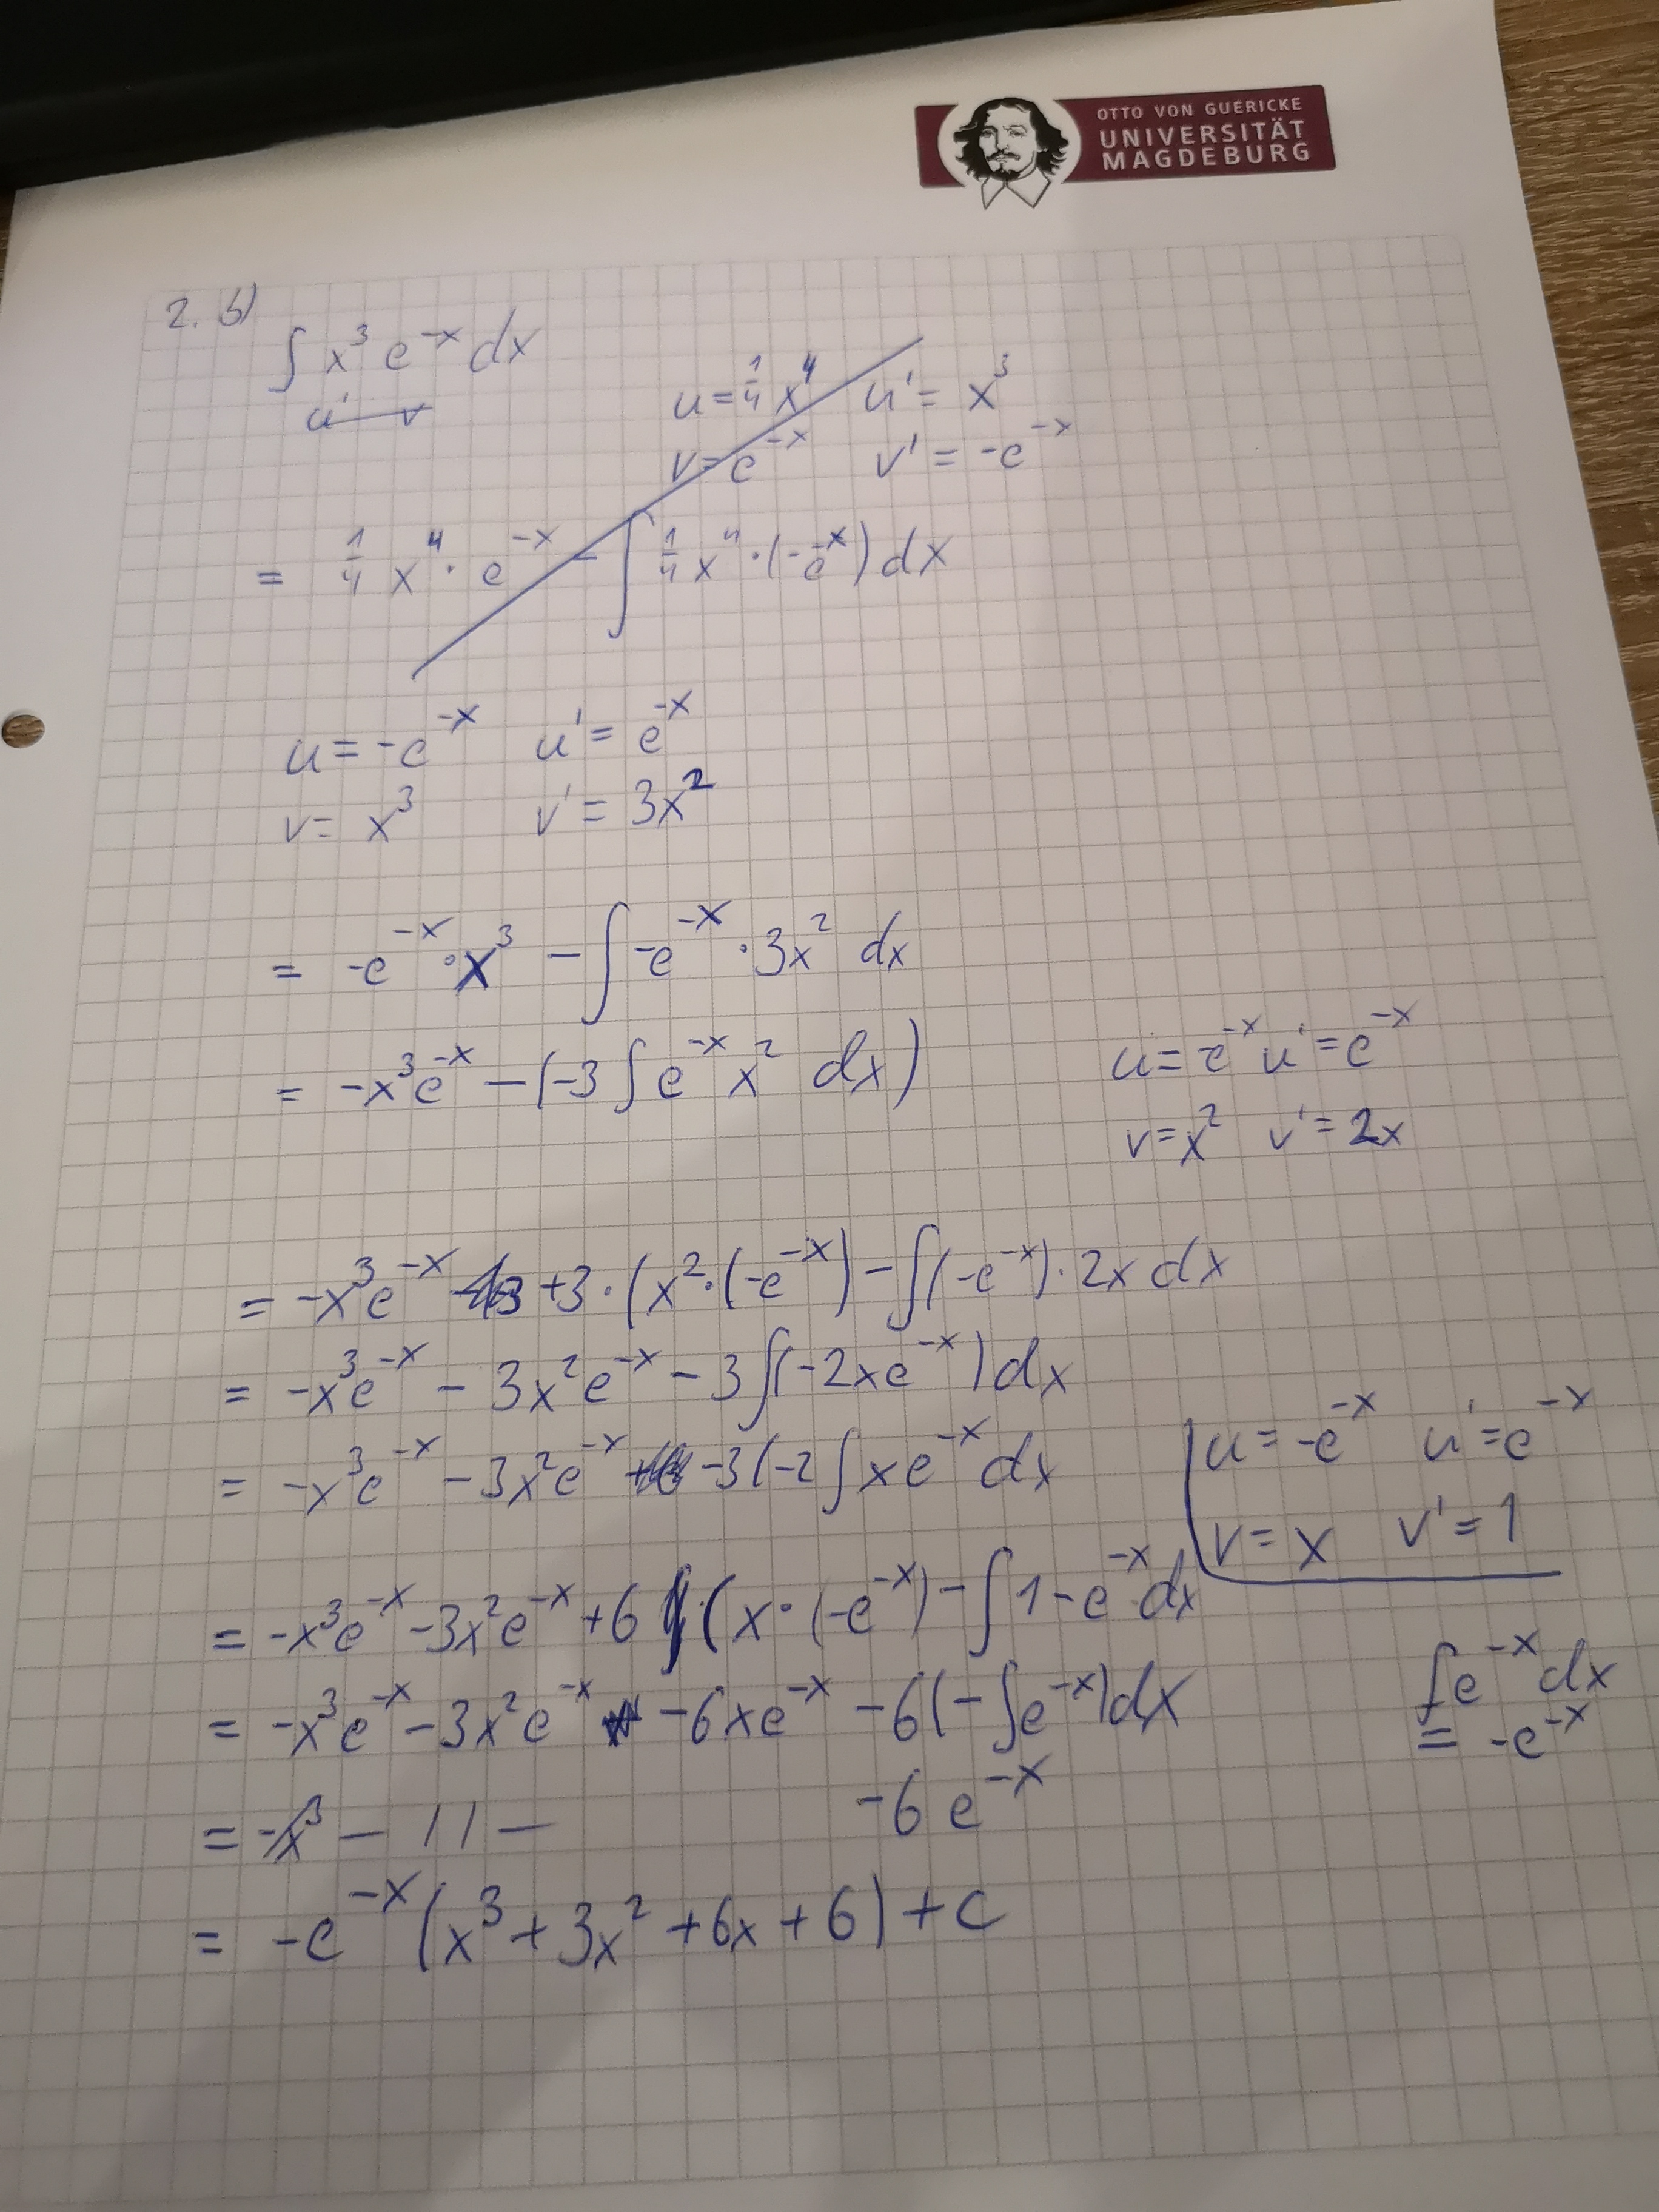 OTTO VON GUERICKE
UNIVERSITÄT
MAGDEBURG
2. b)
∫ x³ e⁻ˣ dx
u' v
u = 1/4 x⁴ u' = x³
v = e⁻ˣ v' = -e⁻ˣ
= 1/4 x⁴ · e⁻ˣ - ∫ 1/4 x⁴ · (-e⁻ˣ) dx
u = -e⁻ˣ u' = e⁻ˣ
v = x³ v' = 3x²
= -e⁻ˣ · x³ - ∫ -e⁻ˣ · 3x² dx
= -x³e⁻ˣ - (-3 ∫ e⁻ˣ x² dx)
u = -e⁻ˣ u' = e⁻ˣ
v = x² v' = 2x
= -x³e⁻ˣ +3 · (x² · (-e⁻ˣ) - ∫(-e⁻ˣ) · 2x dx
= -x³e⁻ˣ - 3x²e⁻ˣ - 3 ∫(-2xe⁻ˣ) dx
= -x³e⁻ˣ - 3x²e⁻ˣ -3(-2 ∫ xe⁻ˣ dx
u = -e⁻ˣ u' = e⁻ˣ
v = x v' = 1
= -x³e⁻ˣ - 3x²e⁻ˣ + 6 · (x · (-e⁻ˣ) - ∫ 1 - e⁻ˣ dx
= -x³e⁻ˣ - 3x²e⁻ˣ - 6xe⁻ˣ - 6(-∫e⁻ˣ)dx
∫e⁻ˣ dx
= -e⁻ˣ
= -x³ — 11 — -6 e⁻ˣ
= -e⁻ˣ (x³ + 3x² + 6x + 6) + c